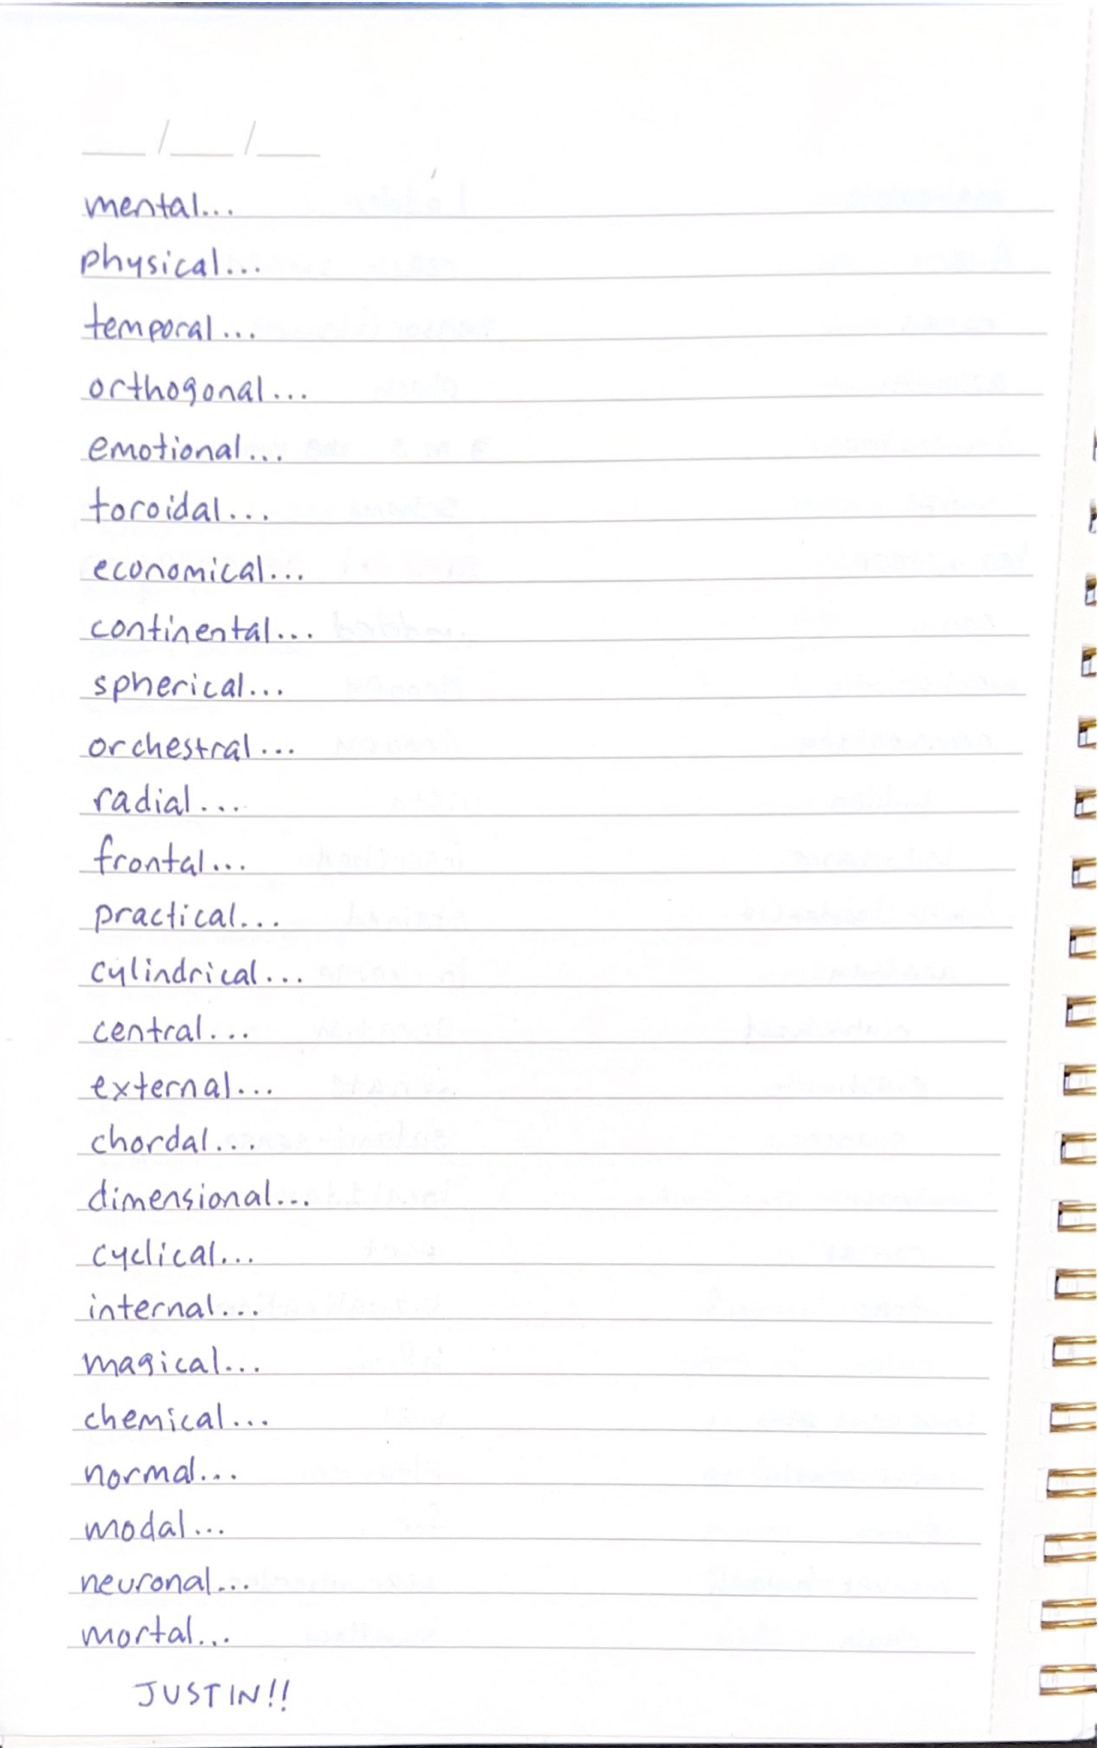 mental...
physical...
temporal...
orthogonal...
emotional...
toroidal...
economical...
continental...
spherical...
orchestral...
radial...
frontal...
practical...
cylindrical...
central...
external...
chordal...
dimensional...
cyclical...
internal...
magical...
chemical...
normal...
modal...
neuronal...
mortal...
JUSTIN!!